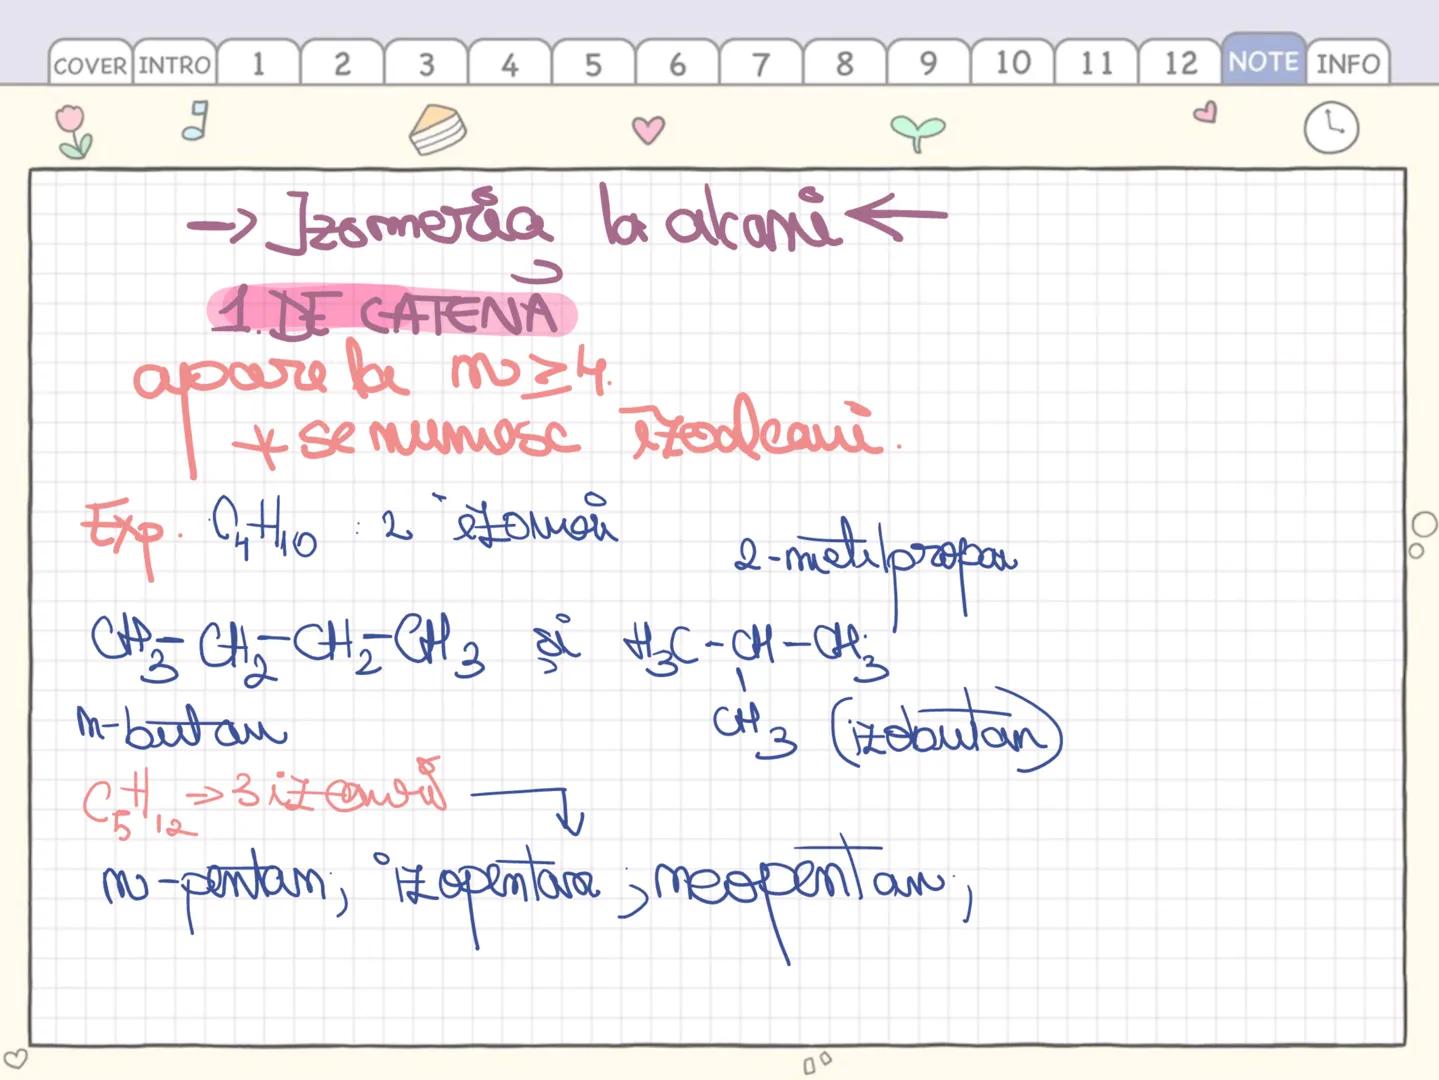 COVER INTRO 1 2 3 4 5 6 7 8 9 10 11 12 NOTE INFO
→ Izomeria la alcani ←
1. DE CATENĂ
apare la n ≥ 4.
* se numesc izoalcani.
Exp. C4H10 : 2 izomeri
2-metilpropan
CH3-CH2-CH2-CH3 și H3C-CH-CH3
CH3
n-butan (izobutan)
C5H12 → 3 izomeri
n-pentan; izopentan; neopentan;